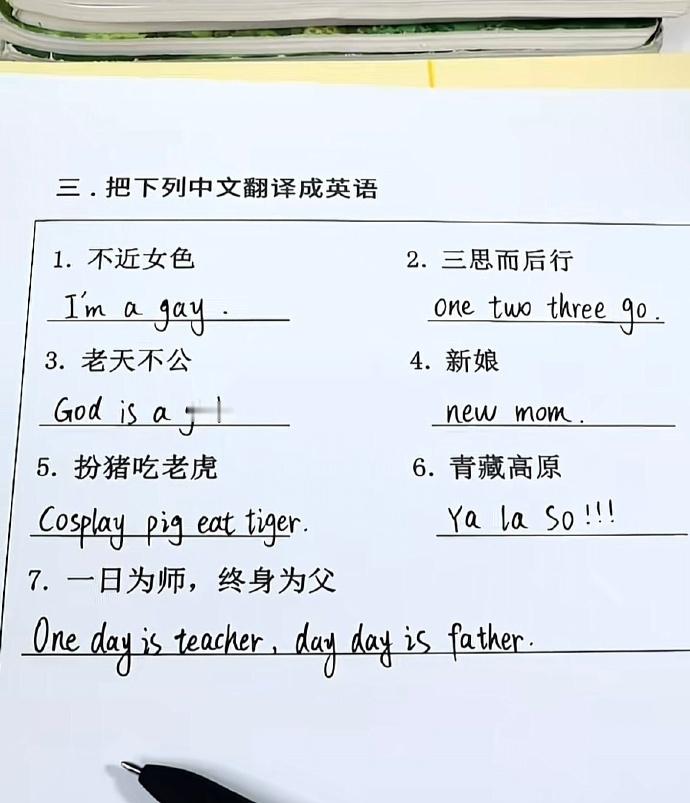 三.把下列中文翻译成英语
1. 不近女色
2. 三思而后行
I'm a gay.
one two three go.
3. 老天不公
4. 新娘
God is a
new mom.
5. 扮猪吃老虎
6. 青藏高原
Cosplay pig eat tiger.
Ya la So!!!
7. 一日为师，终身为父
One day is teacher, day day is father.